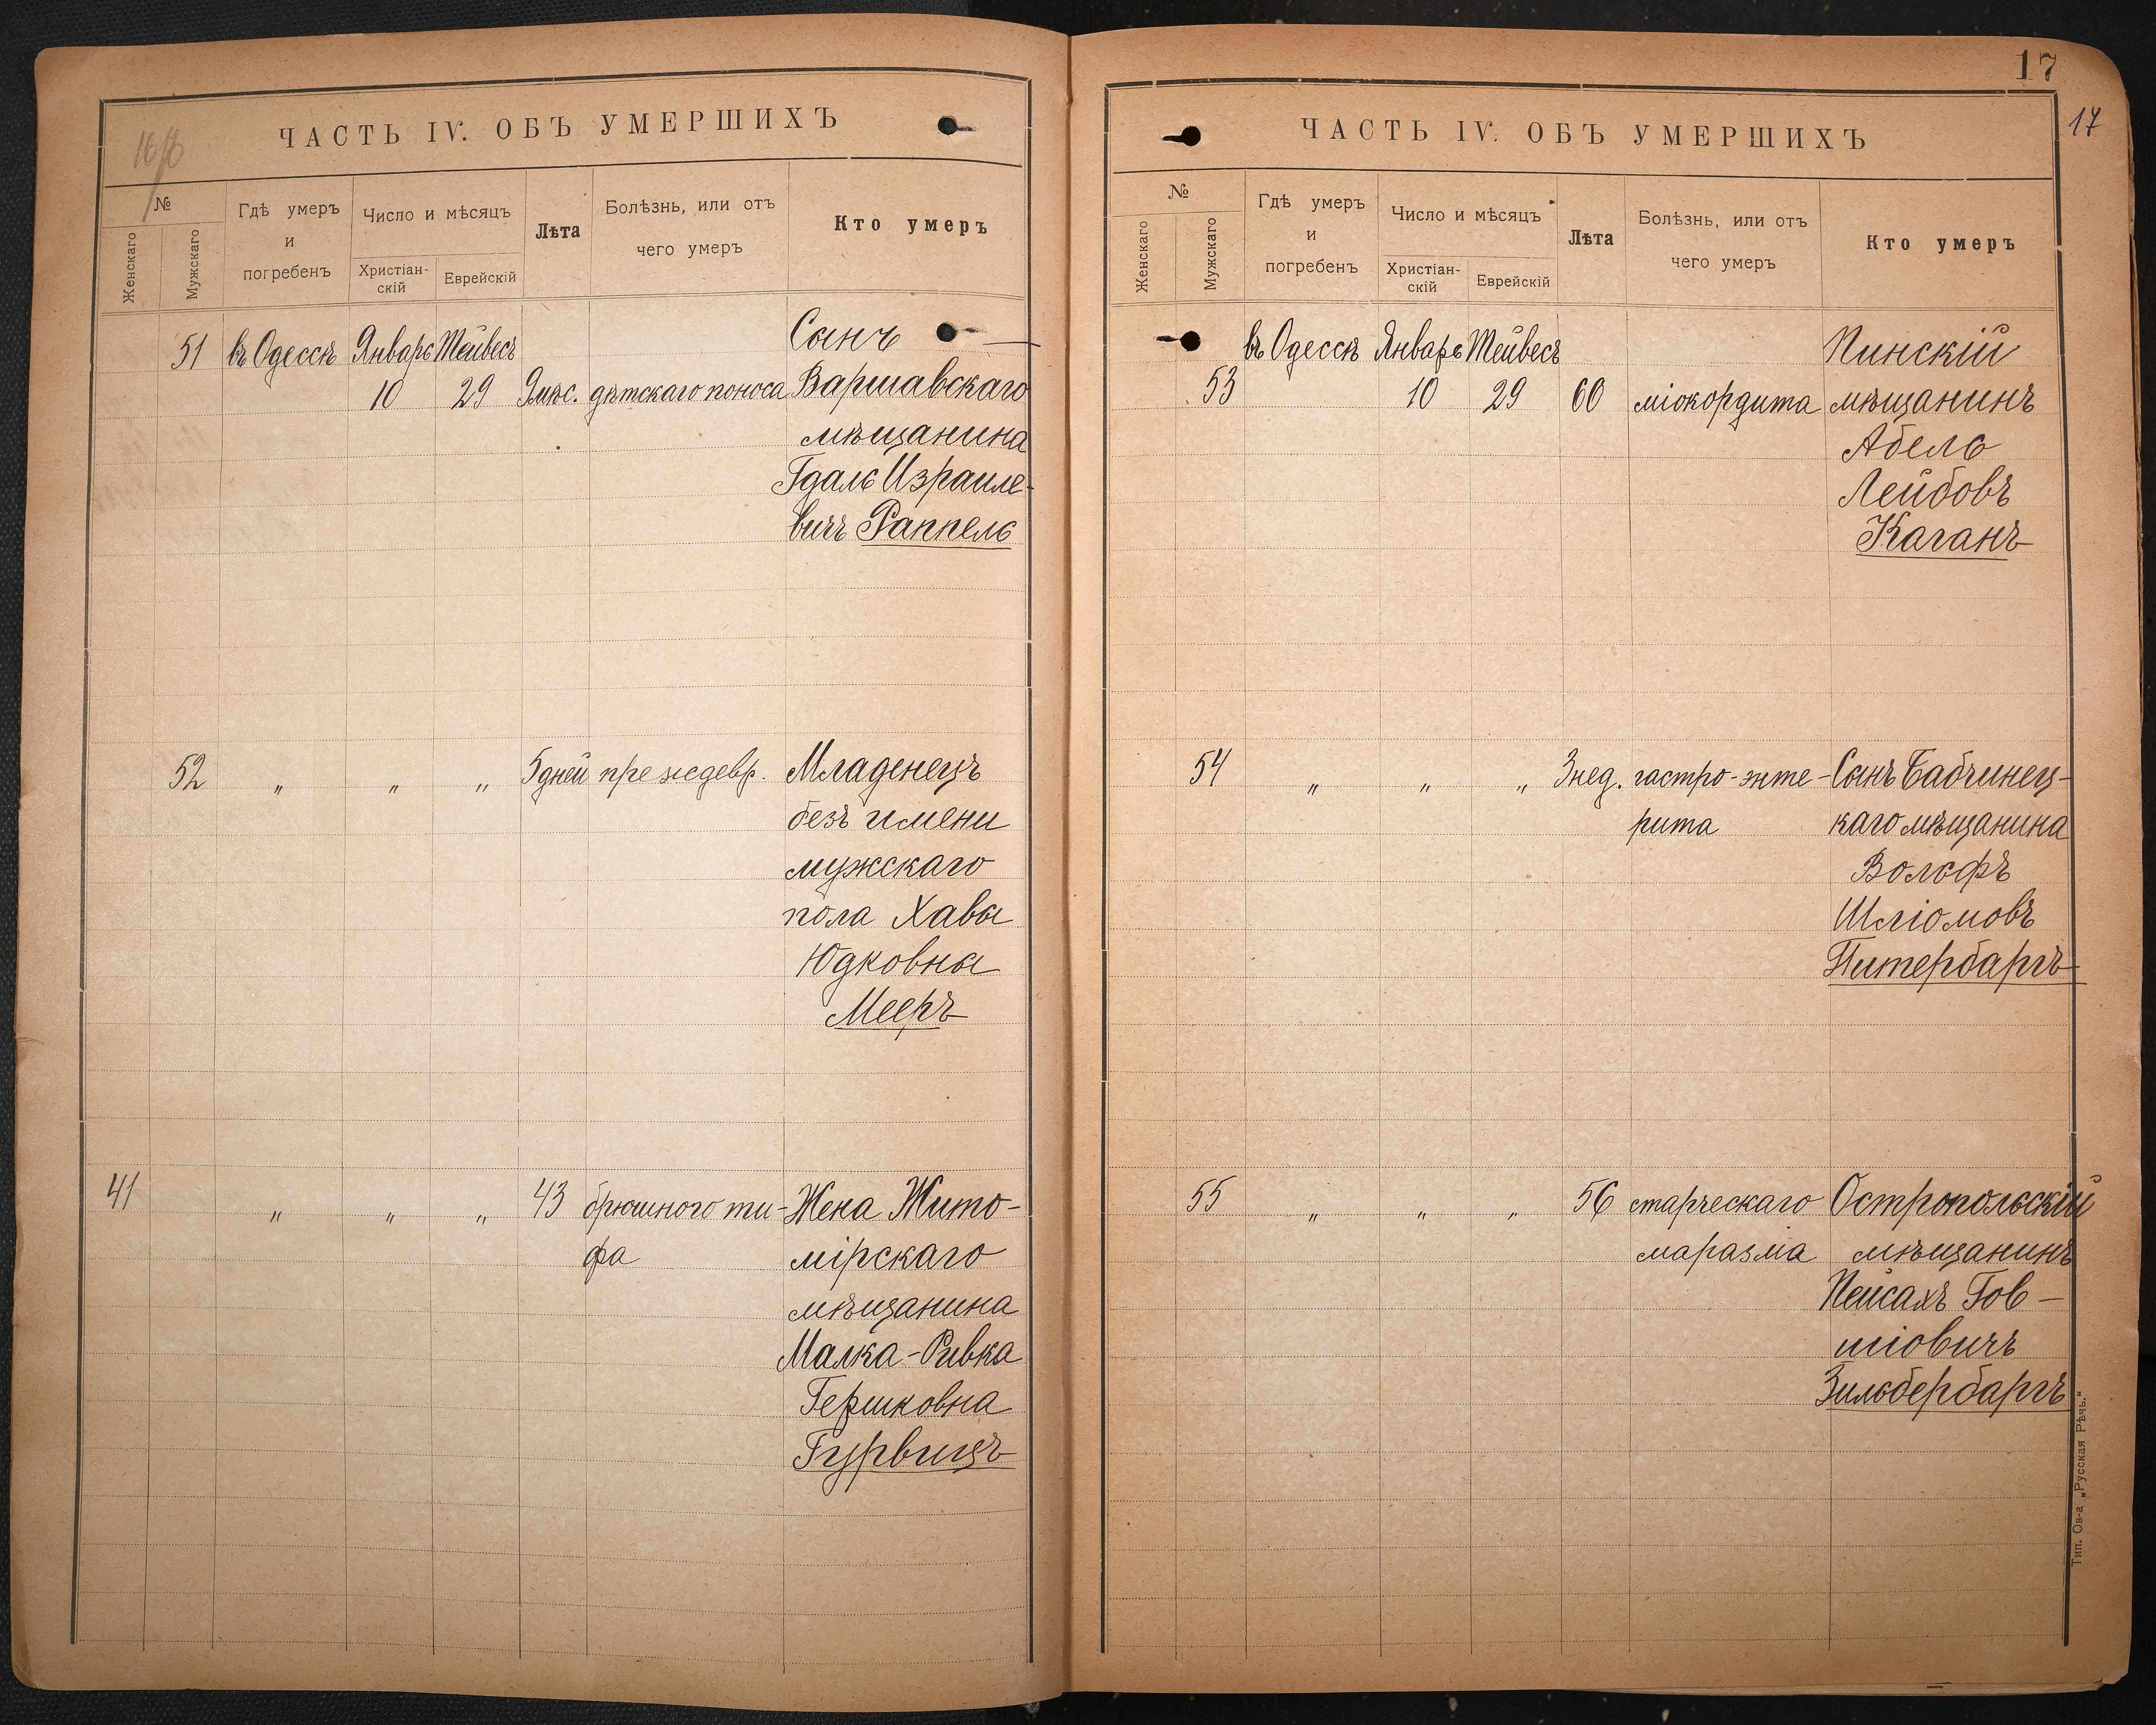 17
17
ЧАСТЬ IV. ОБЪ УМЕРШИХЪ
№
Женскаго
Мужскаго
Гдѣ умеръ
и
погребенъ
Число и мѣсяцъ
Христіан-
скій
Еврейскій
Лѣта
Болѣзнь, или отъ
чего умеръ
Кто умеръ
51 въ Одессѣ Январь Тейвесъ Сынъ
10 29 9 мѣс. дѣтскаго поноса Варшавскаго
мѣщанина
Гдаль Израиле-
вичъ Раппель
52 " " " 5 дней преждевр. Младенецъ
безъ имени
мужскаго
пола Хавы
Юдковны
Мееръ
41 " " " 43 брюшного ти- Жена Жито-
фа мірскаго
мѣщанина
Малка-Ривка
Гершковна
Гурвицъ
ЧАСТЬ IV. ОБЪ УМЕРШИХЪ
№
Женскаго
Мужскаго
Гдѣ умеръ
и
погребенъ
Число и мѣсяцъ
Христіан-
скій
Еврейскій
Лѣта
Болѣзнь, или отъ
чего умеръ
Кто умеръ
въ Одессѣ Январь Тейвесъ Пинскій
53 10 29 60 міокордита мѣщанинъ
Абель
Лейбовъ
Каганъ
54 " " " 3 нед. гастро-энте- Сынъ Бабчинец-
рита каго мѣщанина
Вольфъ
Шліомовъ
Питербаргъ
55 " " " 56 старческаго Остропольскій
маразма мѣщанинъ
Пейсахъ Гов-
шіовичъ
Зильбербаргъ
Тип. Ов-а „Русская Рѣчь.“